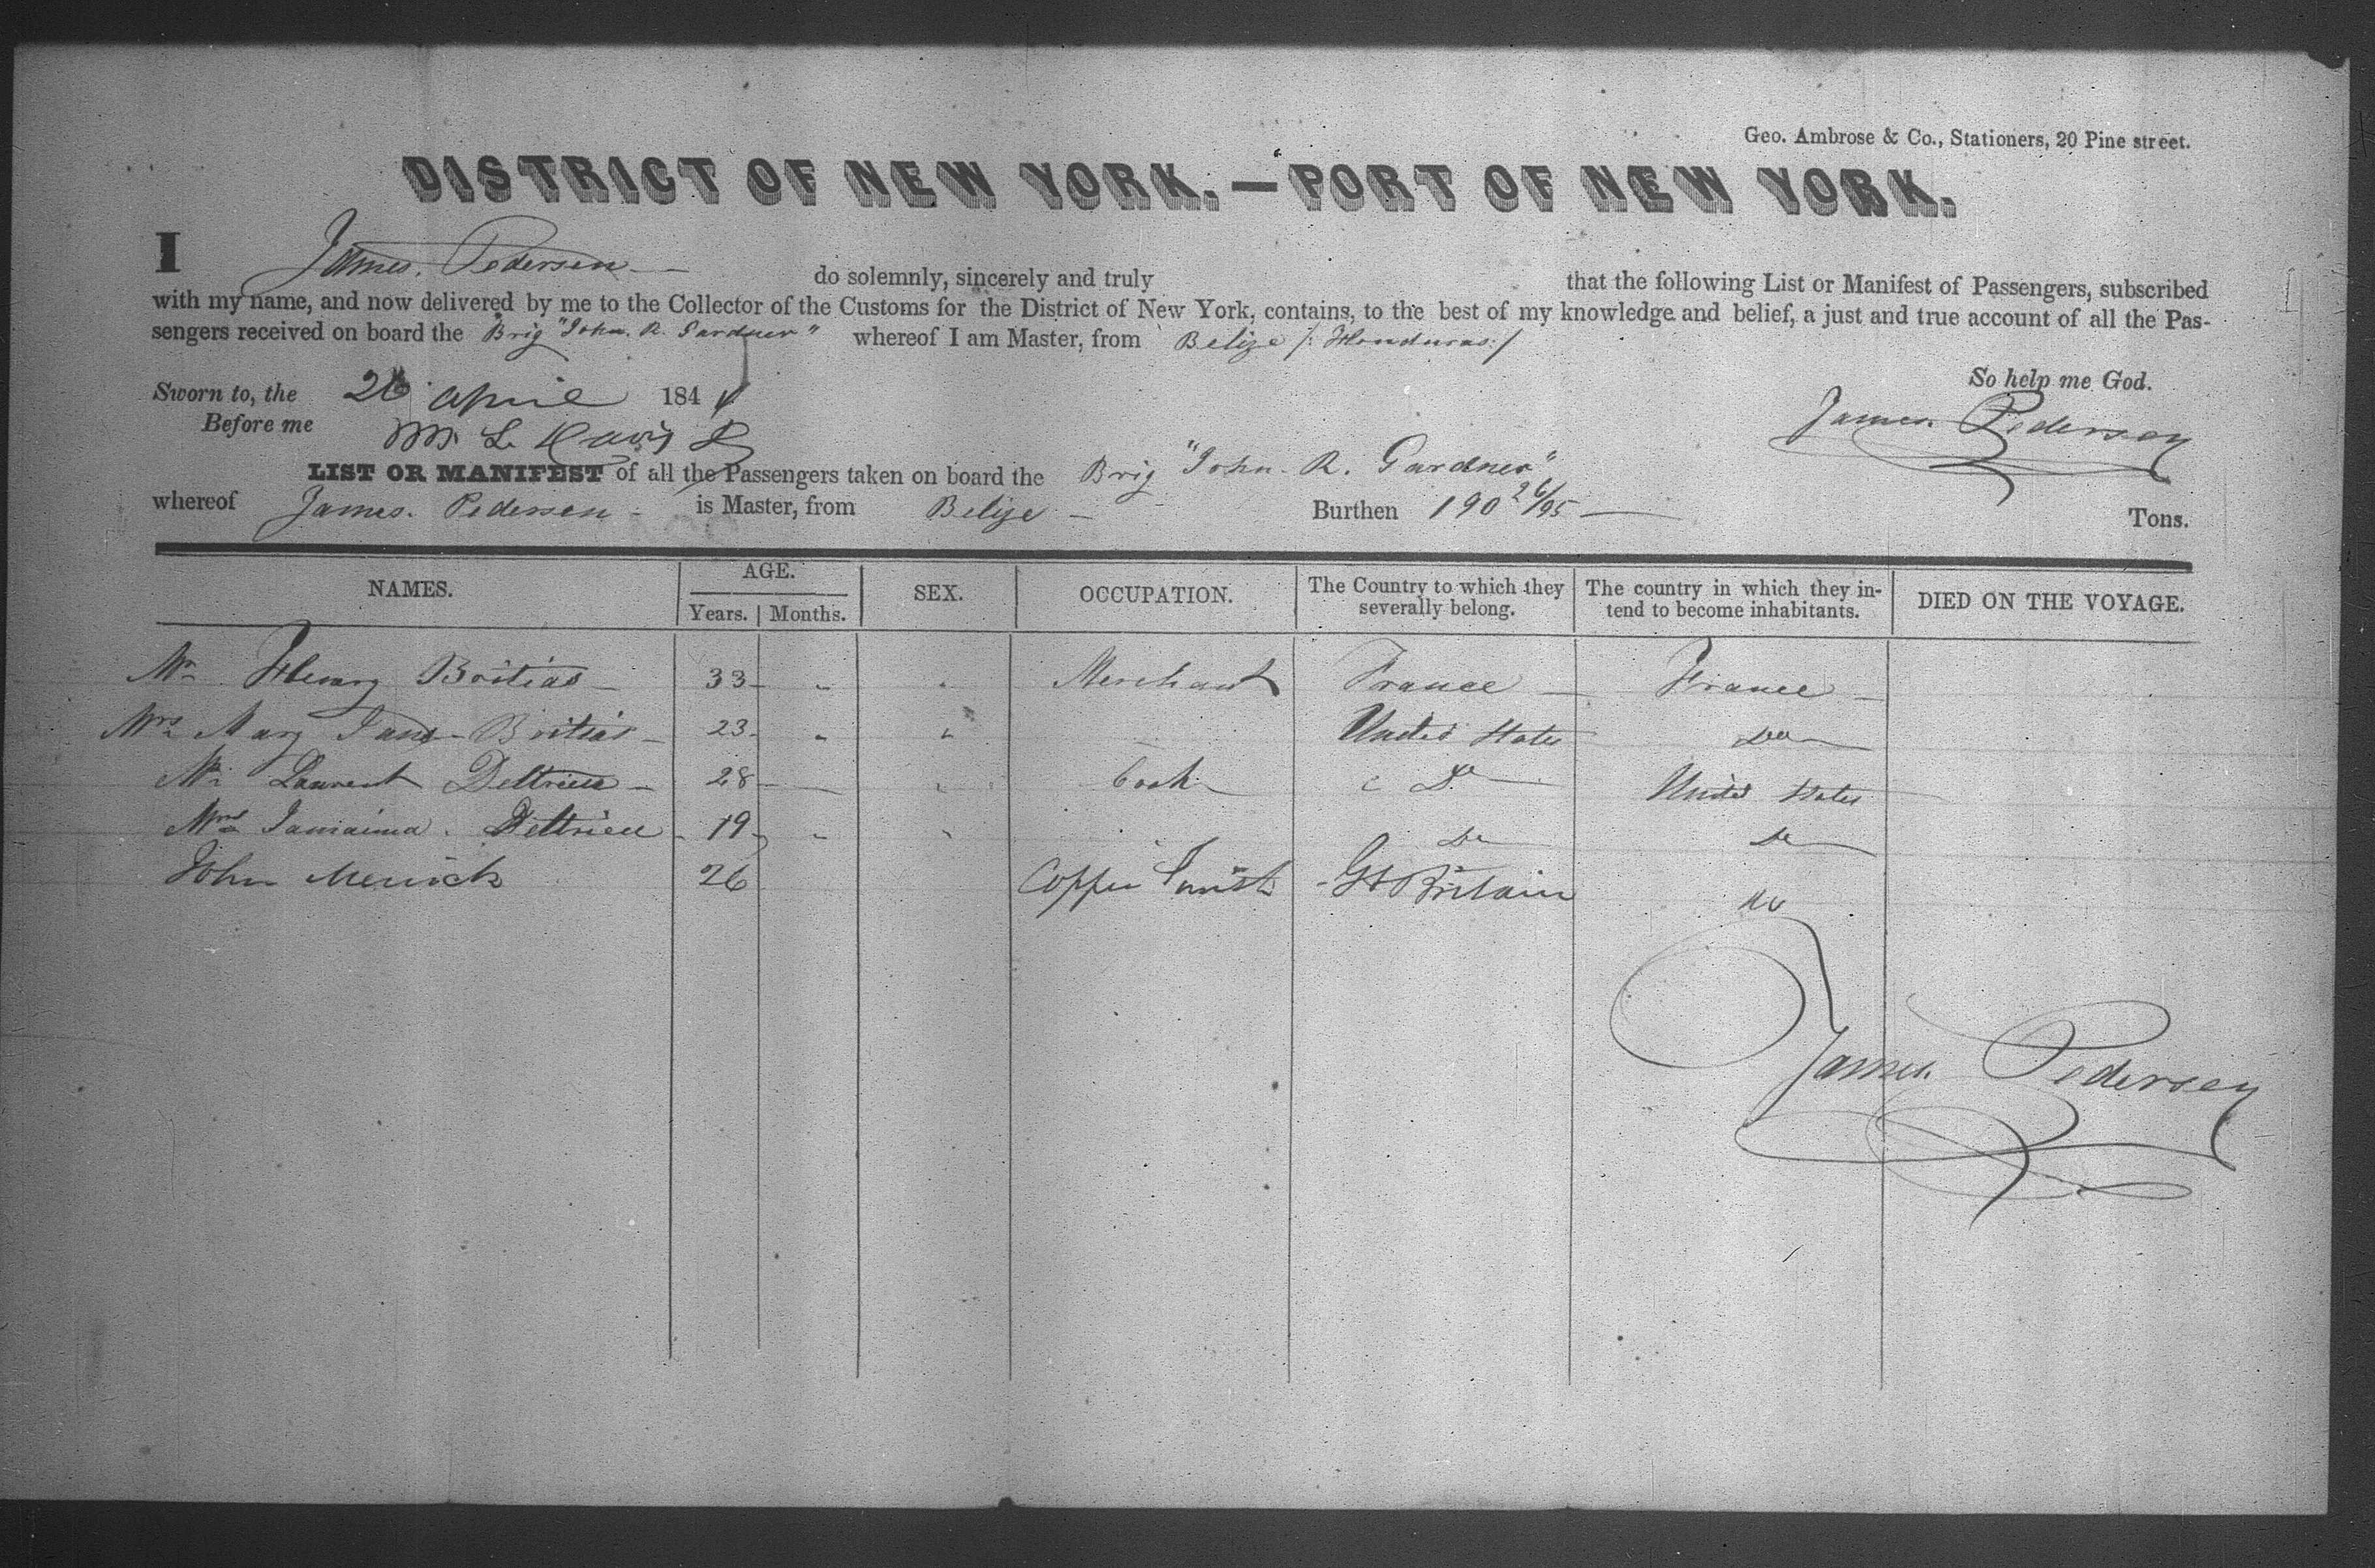 Geo. Ambrose & Co., Stationers, 20 Pine street.
DISTRICT OF NEW YORK.—PORT OF NEW YORK.
I James. Pedersen do solemnly, sincerely and truly that the following List or Manifest of Passengers, subscribed
with my name, and now delivered by me to the Collector of the Customs for the District of New York, contains, to the best of my knowledge and belief, a just and true account of all the Pas-
sengers received on board the Brig "John. R. Gardner" whereof I am Master, from Belize /: Honduras:/
So help me God.
Sworn to, the 26 April 1844
James. Pedersen
Before me
LIST OR MANIFEST of all the Passengers taken on board the Brig "John. R. Gardner"
whereof James. Pedersen - is Master, from Belize - Burthen 190 26/95 Tons.
NAMES. AGE. Years. Months. SEX. OCCUPATION. The Country to which they severally belong. The country in which they in-tend to become inhabitants. DIED ON THE VOYAGE.
Mr Henry 33 Merchant France France
Mrs Mary Jane 23 United States Do
Mr Laurent Deltrieu 28 Cook Do United States
Mrs Jamaima. Deltrieu 19 Do Do
John Merrick 26 Copper Gt Britain do
James. Pedersen